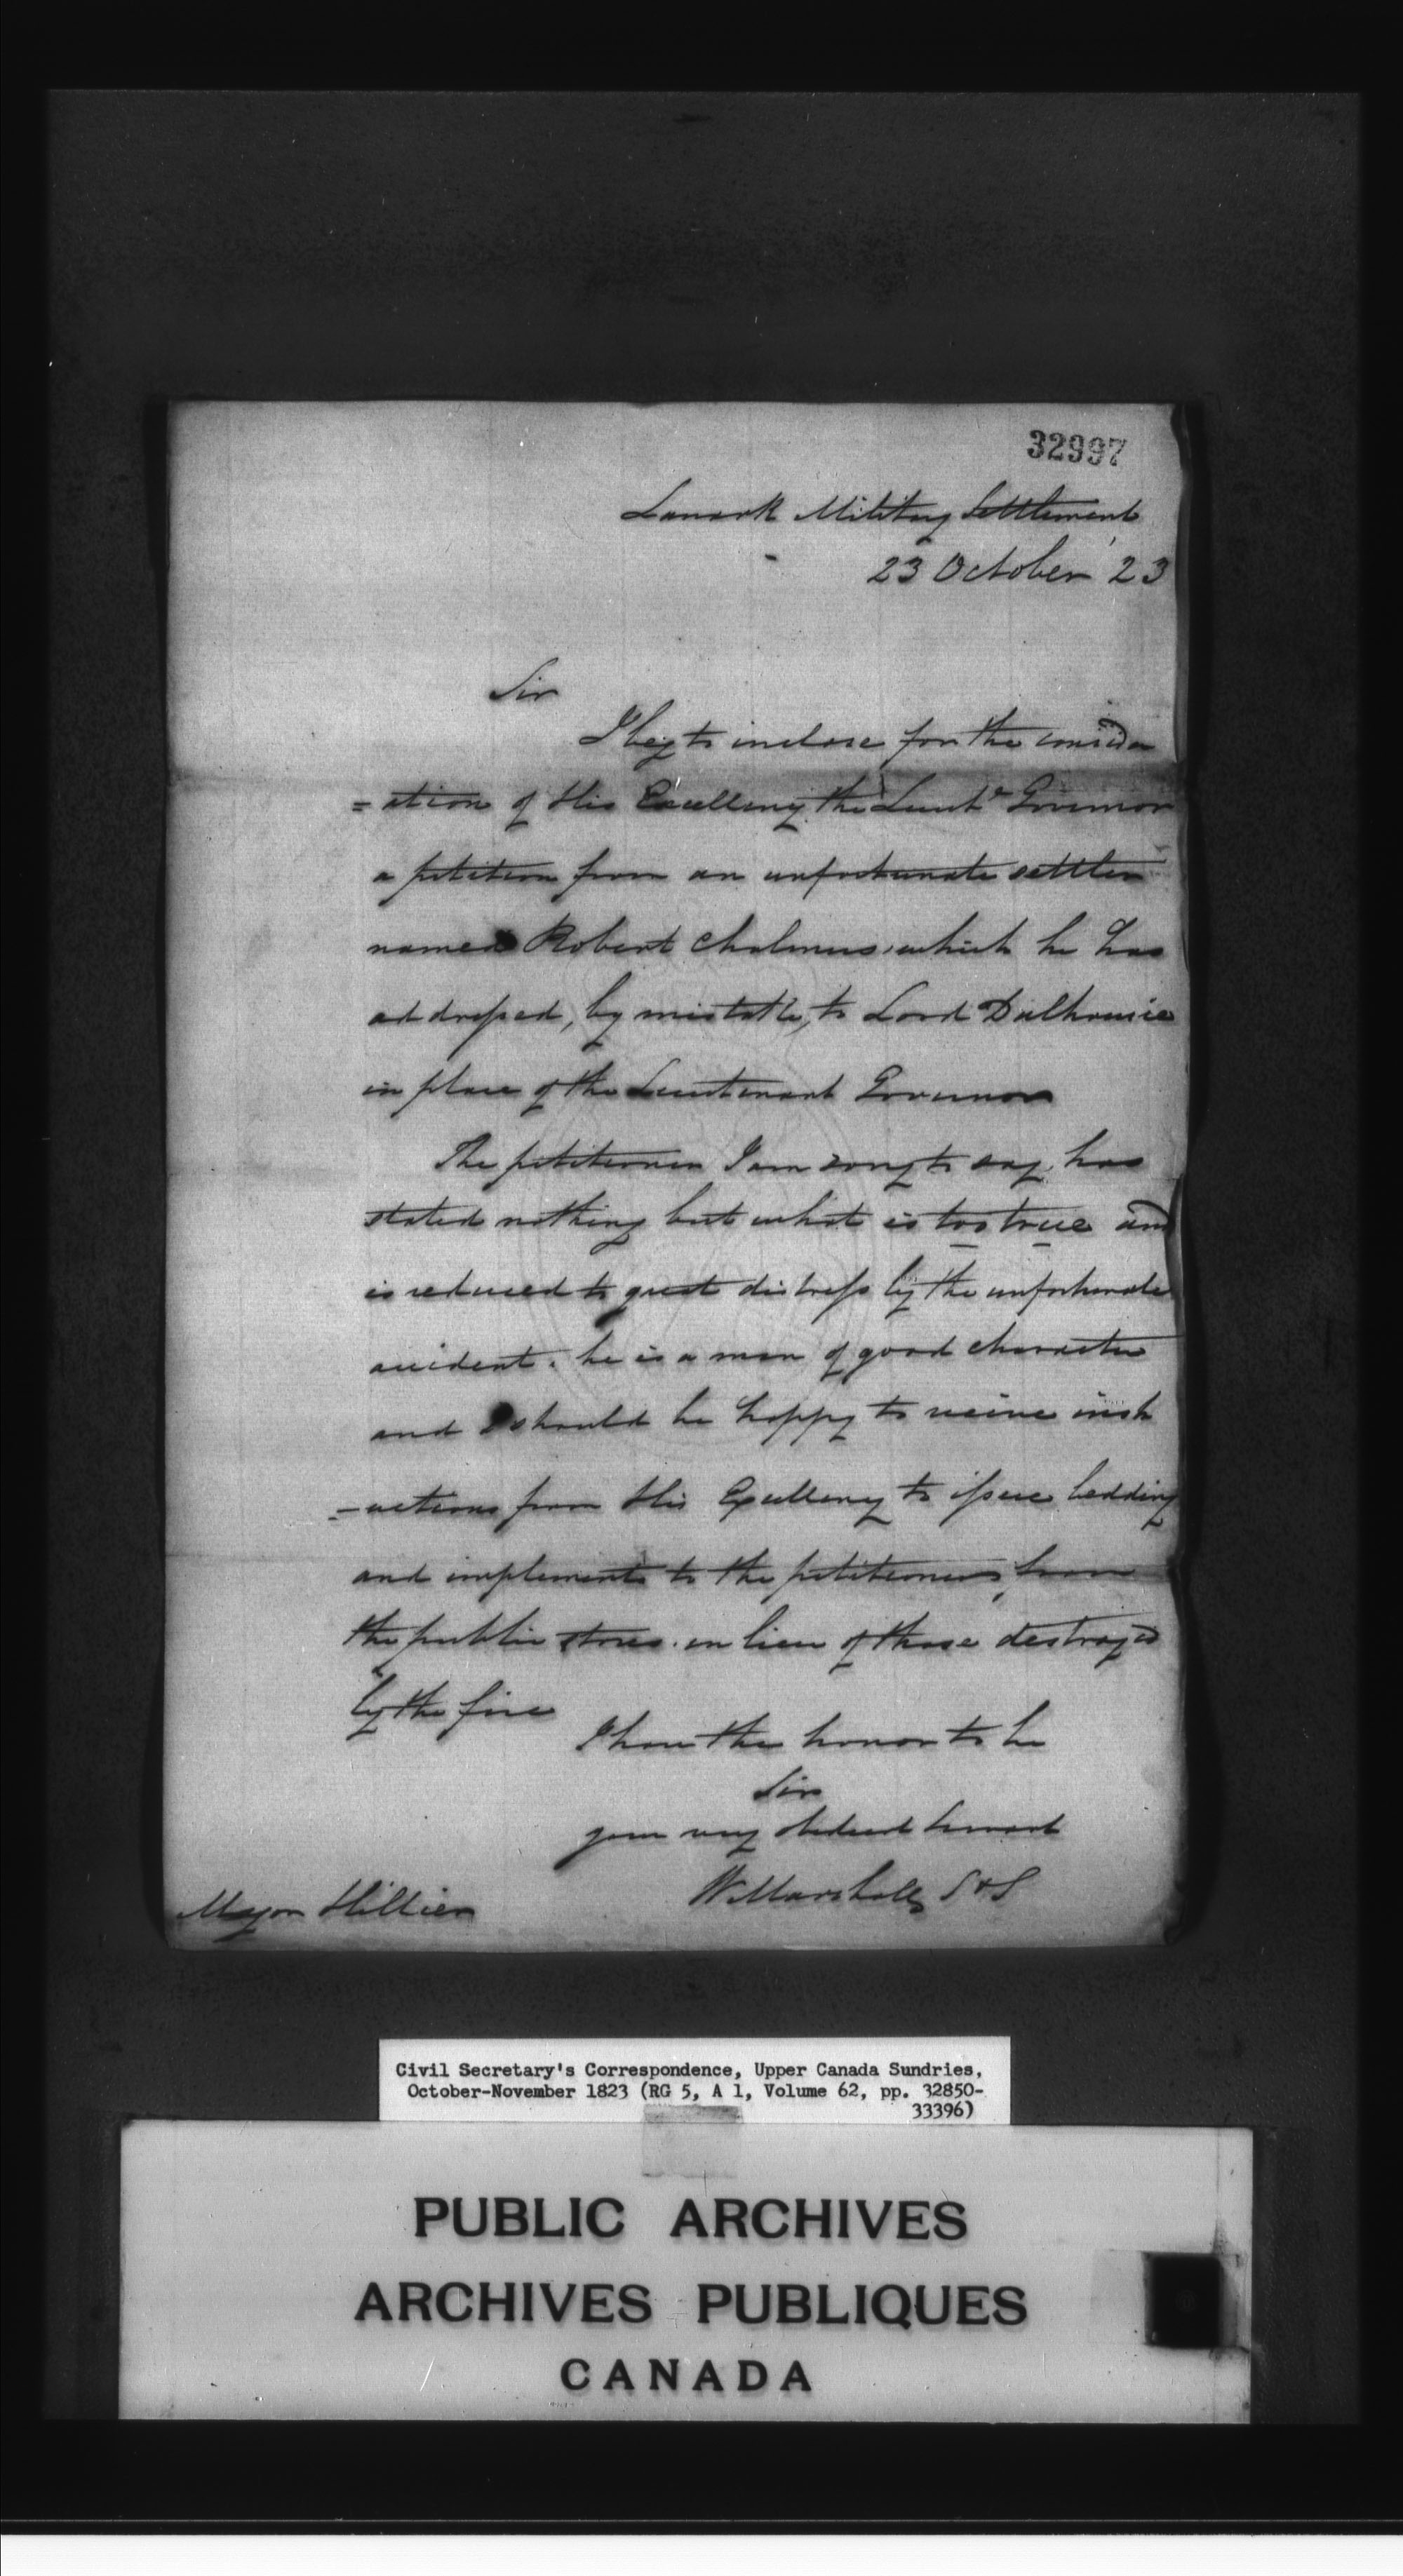 32997
Lanark Military Settlement
23 October 23
Sir
I beg to inclose for the consider
=ation of His Excellency the Lieut.r Governor
a petition from an unfortunate settler
named Robert Chalmers which he has
addressed, by mistake, to Lord Dalhousie
in place of the Lieutenant Governor
The petitioner I am sorry to say, has
stated nothing but what is too true and
is reduced to great distress by the unfortunate
accident. he is a man of good character
and I should be happy to receive instr
=uctions from His Excellency to issue bedding
and implements to the petitioner, from
the public stores in lieu of those destroyed
by the fire
I have the honor to be
Sir
your very obedient Servant
W Marshall S&S
Major Hillier
Civil Secretary's Correspondence, Upper Canada Sundries,
October-November 1823 (RG 5, A 1, Volume 62, pp. 32850-
33396)
PUBLIC ARCHIVES
ARCHIVES PUBLIQUES
CANADA